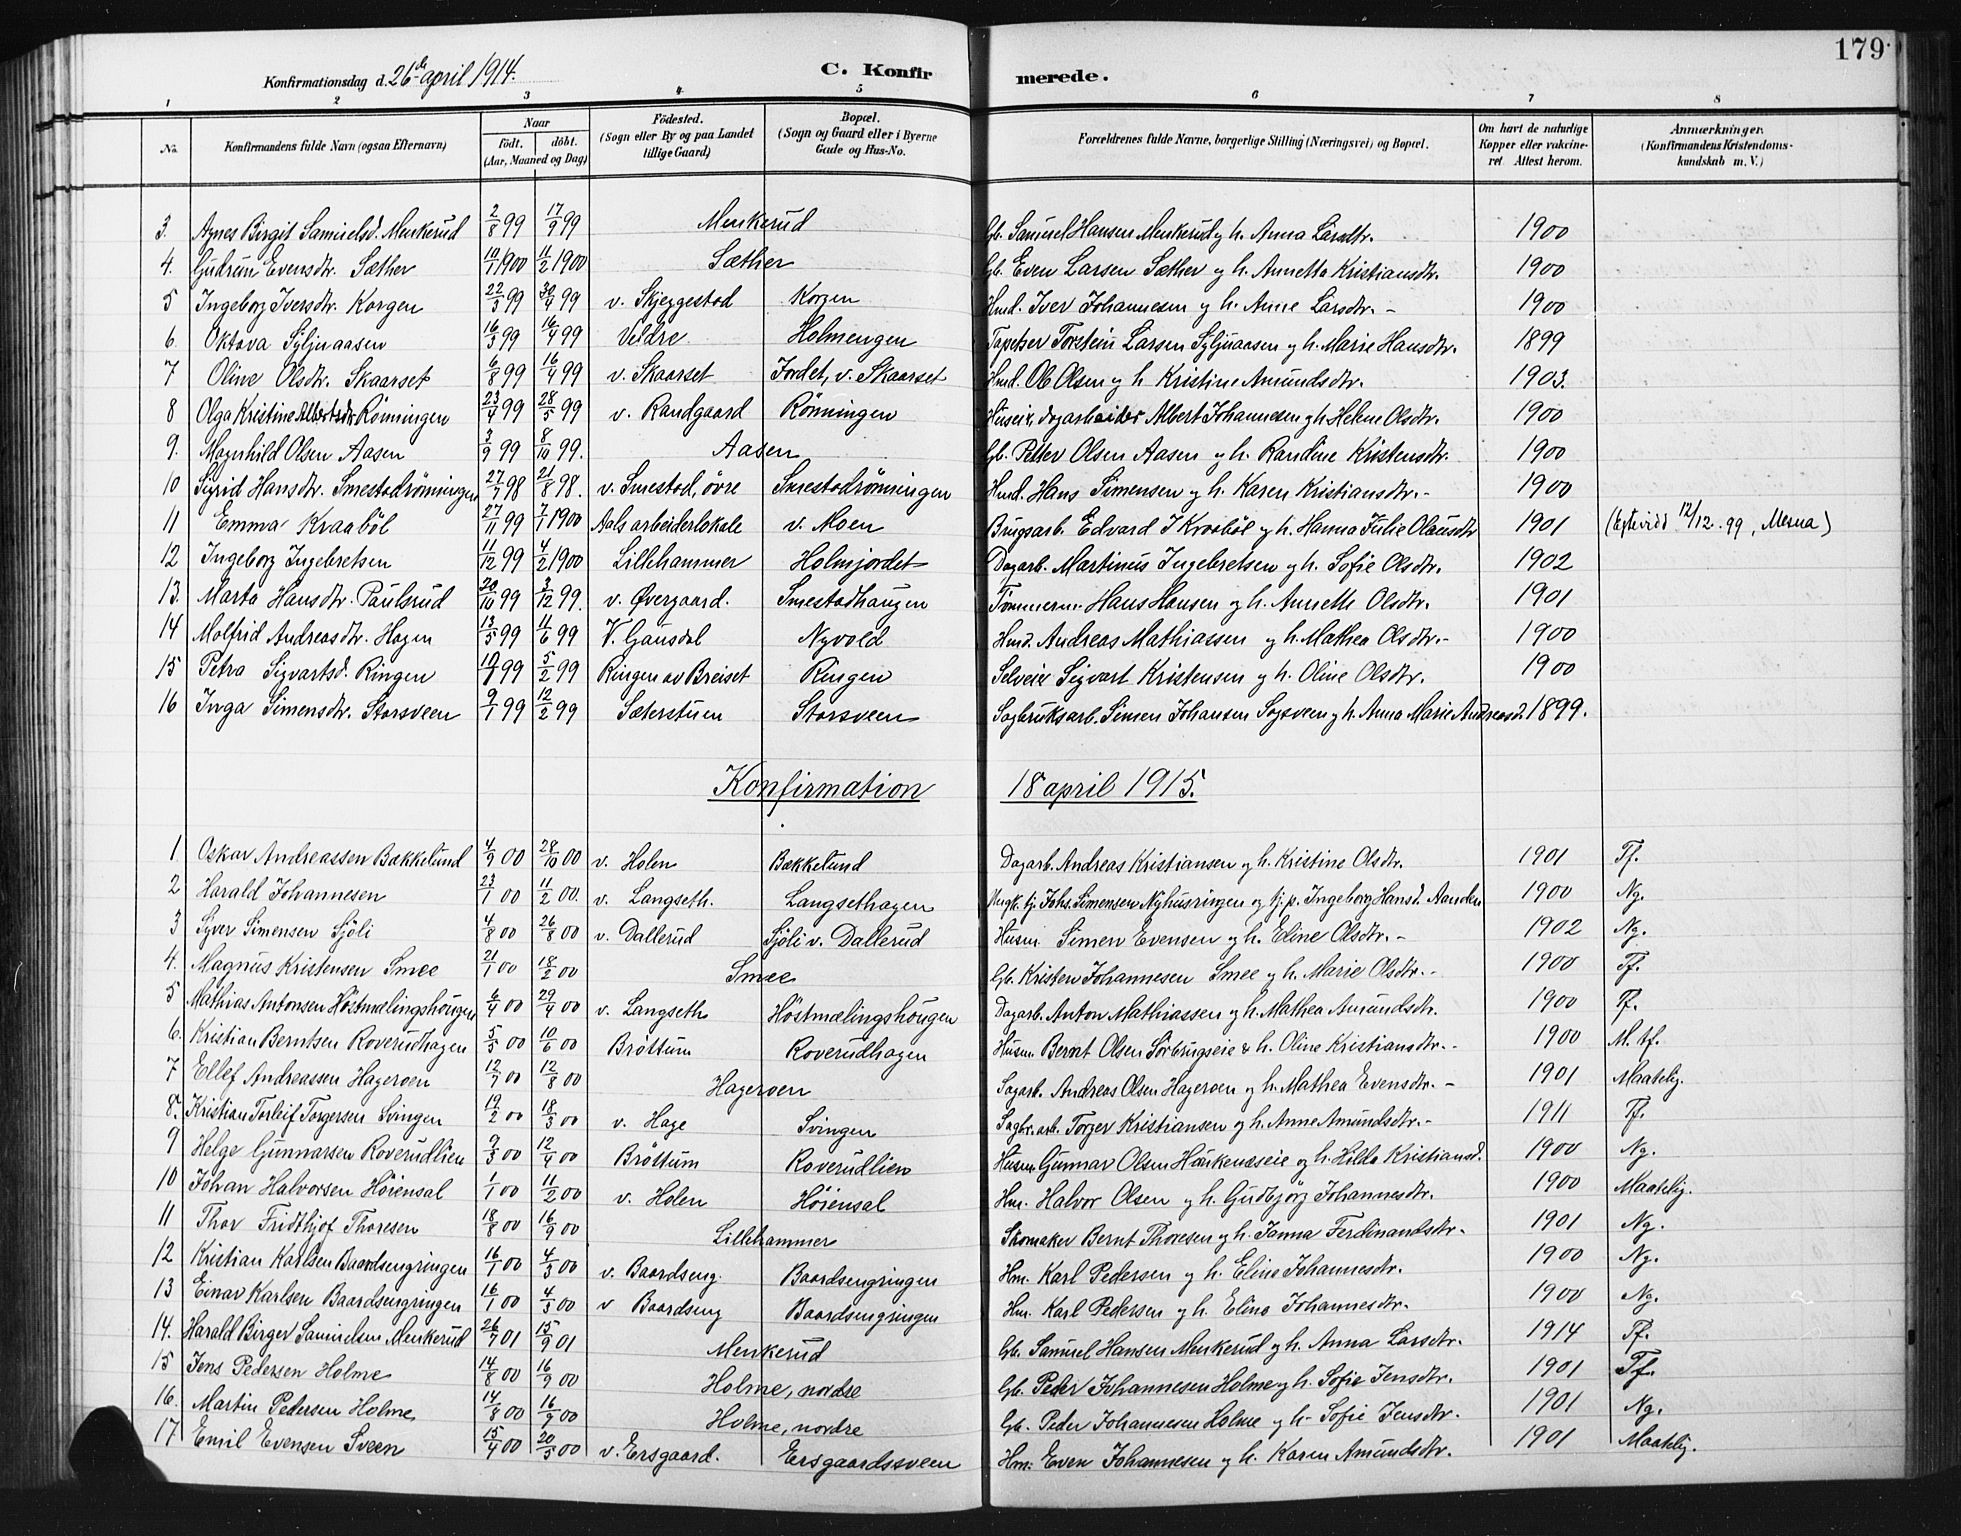 179
Konfirmationsdag d. 26de april 1914. C. Konfirmerede.
1 2 3 4 5 6 7 8
No. Konfirmandens fulde Navn (ogsaa Efternavn) Naar født. døbt. (Aar, Maaned og Dag) Fødested. (Sogn eller By og paa Landet tillige Gaard) Bopæl. (Sogn og Gaard eller i Byerne Gade og Hus-No. Forældrenes fulde Navne, borgerlige Stilling (Næringsvei) og Bopæl. Om havt de naturlige Kopper eller vakcineret Attest herom. Anmærkninger. (Konfirmandens Kristendomskundskab m. V.)
3. Agnes Birgit Samuelsd. Menkerud 2/8 99 17/9 99 Menkerud Gb. Samuel Hansen Menkerud og h. Anna Larsdtr. 1900
4. Gudrun Evensdtr. Sæther 10/1 1900 11/2 1900 Sæther Gb. Even Larsen Sæther og h. Annetta Kristiansdtr. 1900
5 Ingeborg Iversdtr. Korgen 22/3 99 30/4 99 v. Skjeggestad Korgen Hmd. Iver Johannesen og h. Anne Larsdtr. - 1900
6. Oktava Syljuaasen 16/3 99 16/4 99 Veldre Holmengen Tapetser Torstein Larsen Syljuaasen og h. Marie Hansdtr. 1899
7 Oline Olsdtr. Skaarset 6/8 99 16/4 99 v. Skaarset Jordet, v. Skaarset Hmd. Ole Olsen og h Kristine Amundsdtr. 1903.
8 Olga Kristine Albertsdtr Rönningen 23/4 99 28/5 99 v. Randgaard Rönningen Huseier, dagarbeider Albert Johannesen og h Helene Olsdtr. 1900
9. Magnhild Olsen Aasen 3/9 99 8/10 99. Aasen Gb. Petter Olsen Aasen og h. Randine Kristensdtr. 1900
10 Sigrid Hansdtr. Smestadrönningen 27/7 98 21/8 98. v. Smestad, övre Smestadrönningen Hmd. Hans Simensen og h. Karen Kristiansdtr. - 1900
11 Emma Kraaböl 27/11 99 7/1 1900 Aals arbeiderlokale v. Moen Brugsarb. Edvard I Kraaböl og h. Hanna Julie Olausdtr 1901 12/12 .99, Mesna)
12 Ingeborg Ingebretsen 11/12 99 4/2 1900 Lillehammer Holmjordet Dagarb. Martinus Ingebretsen og h. Sofie Olsdtr. 1902
13. Marta Hansdtr. Paulsrud 20/10 99 3/12 99. v. Øvergaard. Smestadhaugen Tömmerm. Hans Hansen og h. Annette Olsdtr. 1901
14 Molfrid Andreasdtr. Hagen 13/5 99 11/6 99 V. Gausdal Nyvold Hmd. Andreas Mathiassen og h. Mathea Olsdtr. - 1900
15 Petra Sigvartsd. Ringen 99 5/2 99 Ringen av Breiset Ringen Selveier Sigvart Kristensen og h. Oline Olsdtr. 1900
16 Inga Simensdtr. Storsveen 9/1 99 12/2 99 Sæterstuen Storsveen Sagbruksarb. Simen Johansen Sagsveen og h. Anna Marie Andreasd. 1899.
Konfirmation 18 april 1915.
1 Oskar Andreassen Bakkelund 4/9 00 28/10 00 v. Holen Bækkelund Dagarb. Andreas Kristiansen og h. Kristine Olsdtr. 1901 Tf.
2 Harald Johannesen 23/1 00 11/2 00. v. Langseth. Langsethagen Ungk. tj Johs. Simensen Nyhusringen og tj. p. Ingeborg Hansd. Aanden 1900 Ng.
3 Syver Simensen Sjöli 4/8 00 26/8 00 v. Dallerud Sjöli v. Dallerud Husm Simen Evensen og h. Eline Olsdtr. - 1902 Ng.
4. Magnus Kristensen Smee 21/1 00 18/2 00 Smee Gb. Kristen Johannesen Smee og h. Marie Olsdtr. - 1900 Tf.
5 Mathias Antonsen Höstmælingshougen 6/4 00 29/4 00 v. Langseth Höstmælingshougen Dagarb. Anton Mathiassen og h. Mathea Amundsdtr. 1900 Tf.
6. Kristian Berntsen Roverudhagen 5/5 00 10/6 00 Bröttum Roverudhagen Husm Bernt Olsen Sörbrugseie & h. Oline Kristiansdtr. - 1900 M. tf.
7 Ellef Andreassen Hageroen 12/7 00 12/8 00 Hageroen Sagarb. Andreas Olsen Hageroen og h. Mathea Evensdtr. - 1901 Maatelig.
8. Kristian Torleif Torgersen Svingen 19/2 00 18/3 00 v. Hage Svingen Sagbr. arb. Torger Kristiansen og h. Anne Amundsdtr. - 1911 Tf.
9 Helge Gunnarsen Roverudlien 9/3 00 12/4 00 Bröttum Roverudlien Husm. Gunnar Olsen Haukenæseie og h. Hilda Kristiansd. 1900 Ng.
10 Johan Halvorsen Höiensal 1/1 00 11/2 00 v. Holen Höiensal Hm. Halvor Olsen og h. Gudbjörg Johannesdtr. 1900 Maatelig.
11 Thor Fridthjof Thoresen 18/8 00 16/9 00 Lillehammer Skomaker Bernt Thoresen og h. Janna Ferdinandsdtr. 1901 Ng.
12 Kristian Karlsen Baardsengringen 16/1 00 4/3 00 v. Baardseng. Baardsengringen Hm. Karl Pedersen og h. Eline Johannesdtr. 1900 Ng.
13 Einar Karlsen Baardsengringen 16/1 00 4/3 00 v Baardseng Baardsengringen Hm. Karl Pedersen og h. Eline Johannesdtr. 1900 Ng.
14. Harald Birger Samuelsen Menkerud 26/7 01 15/9 01 Menkerud Gb. Samuel Hansen Menkerud og h. Anna Larsdtr. 1914 Tf.
15 Jens Pedersen Holme 14/8 00 16/9 00 Holme, nordre Gb. Peder Johannesen Holme og h. Sofie Jensdtr. 1901 Tf.
16. Martin Pedersen Holme 14/8 00 16/9 00 Holme, nordre Gb. Peder Johannesen Holme og h. Sofie Jensdtr. 1901 Ng.
17 Emil Evensen Sveen 15/4 00 20/5 00 v. Ersgaard. Ersgaardssveen Hm. Even Johannesen og h. Karen Amundsdtr. 1901 Maatelig.